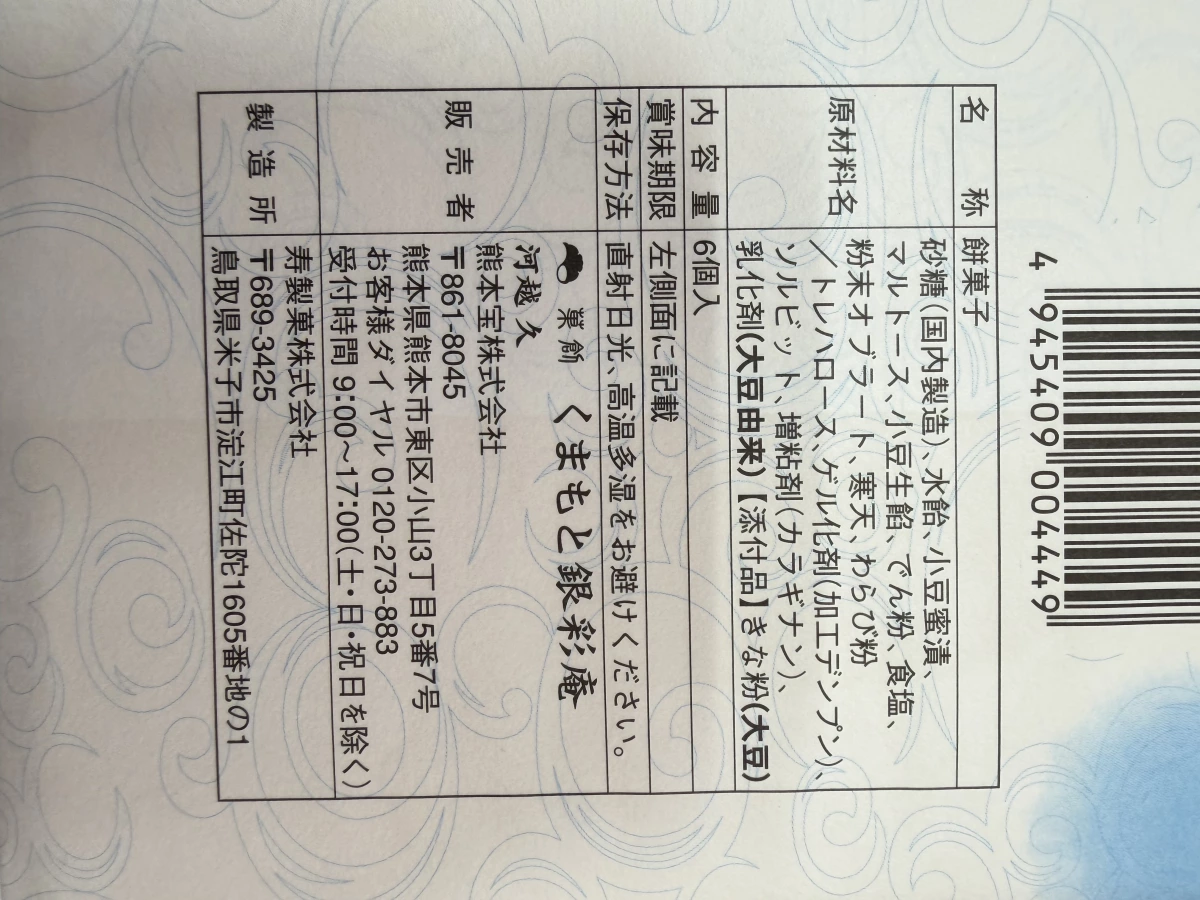 4 945409 004449
名称 餅菓子
原材料名 砂糖(国内製造)、水飴、小豆蜜漬、
マルトース、小豆生餡、でん粉、食塩、
粉末オブラート、寒天、わらび粉
/トレハロース、ゲル化剤(加工デンプン)、
ソルビット、増粘剤(カラギナン)、
乳化剤(大豆由来)【添付品】きな粉(大豆)
内容量 6個入
賞味期限 左側面に記載
保存方法 直射日光、高温多湿をお避けください。
販売者 菓創 くまもと銀彩庵
河越 久
熊本宝株式会社
〒861-8045
熊本県熊本市東区小山3丁目5番7号
お客様ダイヤル 0120-273-883
受付時間 9:00~17:00(土・日・祝日を除く)
製造所 寿製菓株式会社
〒689-3425
鳥取県米子市淀江町佐陀1605番地の1